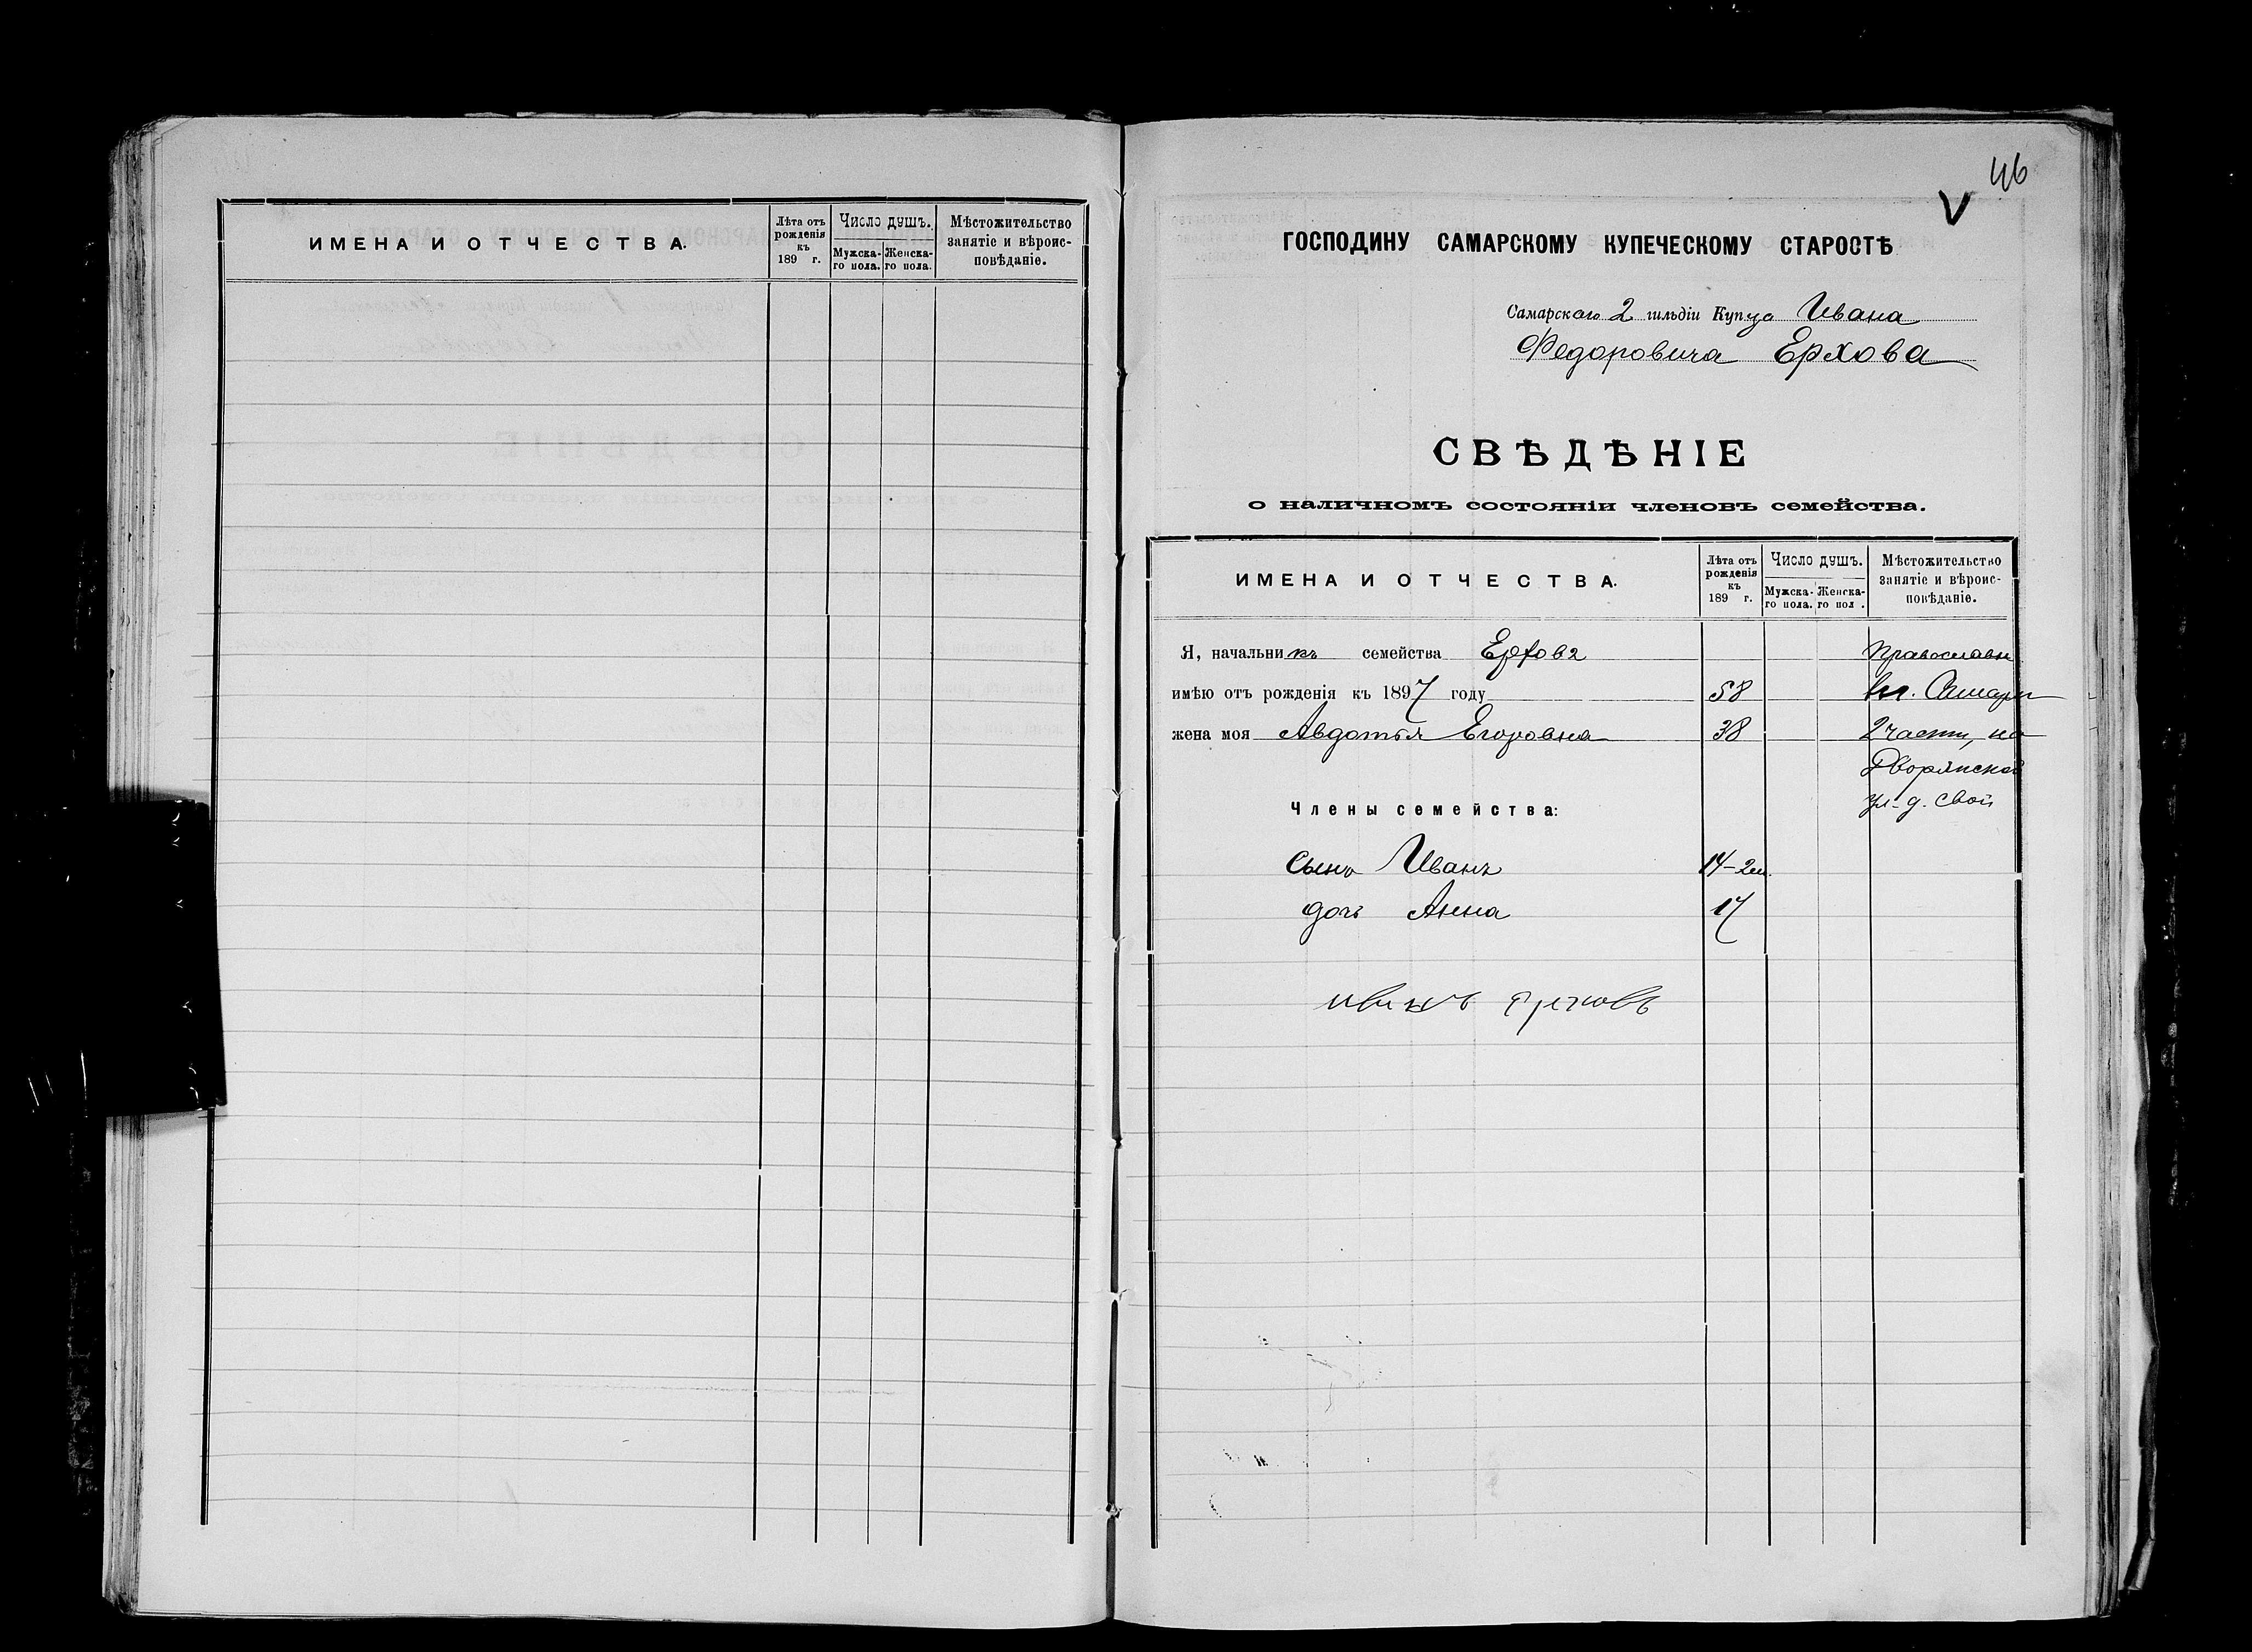 ИМЕНА И ОТЧЕСТВА.
Лѣта отъ рожденія къ 189 г.
Число душъ.
Мужска-го пола.
Женска-го пола.
Мѣстожительство занятіе и вѣроис-повѣданіе.
46
V
ГОСПОДИНУ САМАРСКОМУ КУПЕЧЕСКОМУ СТАРОСТѢ
Самарского 2 гильдіи Купца Ивана
Федоровича Ерхова
СВѢДѢНІЕ
о наличномъ состояніи членовъ семейства.
ИМЕНА И ОТЧЕСТВА.
Лѣта отъ рожденія къ 189 г.
Число душъ.
Мужска-го пола.
Женска-го пол .
Мѣстожительство занятіе и вѣроис-повѣданіе.
Я, начальникъ семейства Ерховъ Православн
имѣю отъ рожденія къ 1897 году 58 Самары
жена моя Авдотья Егоровна 38 2 части, на
Дворянской
ул. д. свой
Члены семейства:
Сынъ Иванъ 14-2м.
дочь Анна 17
иванъ ерховъ